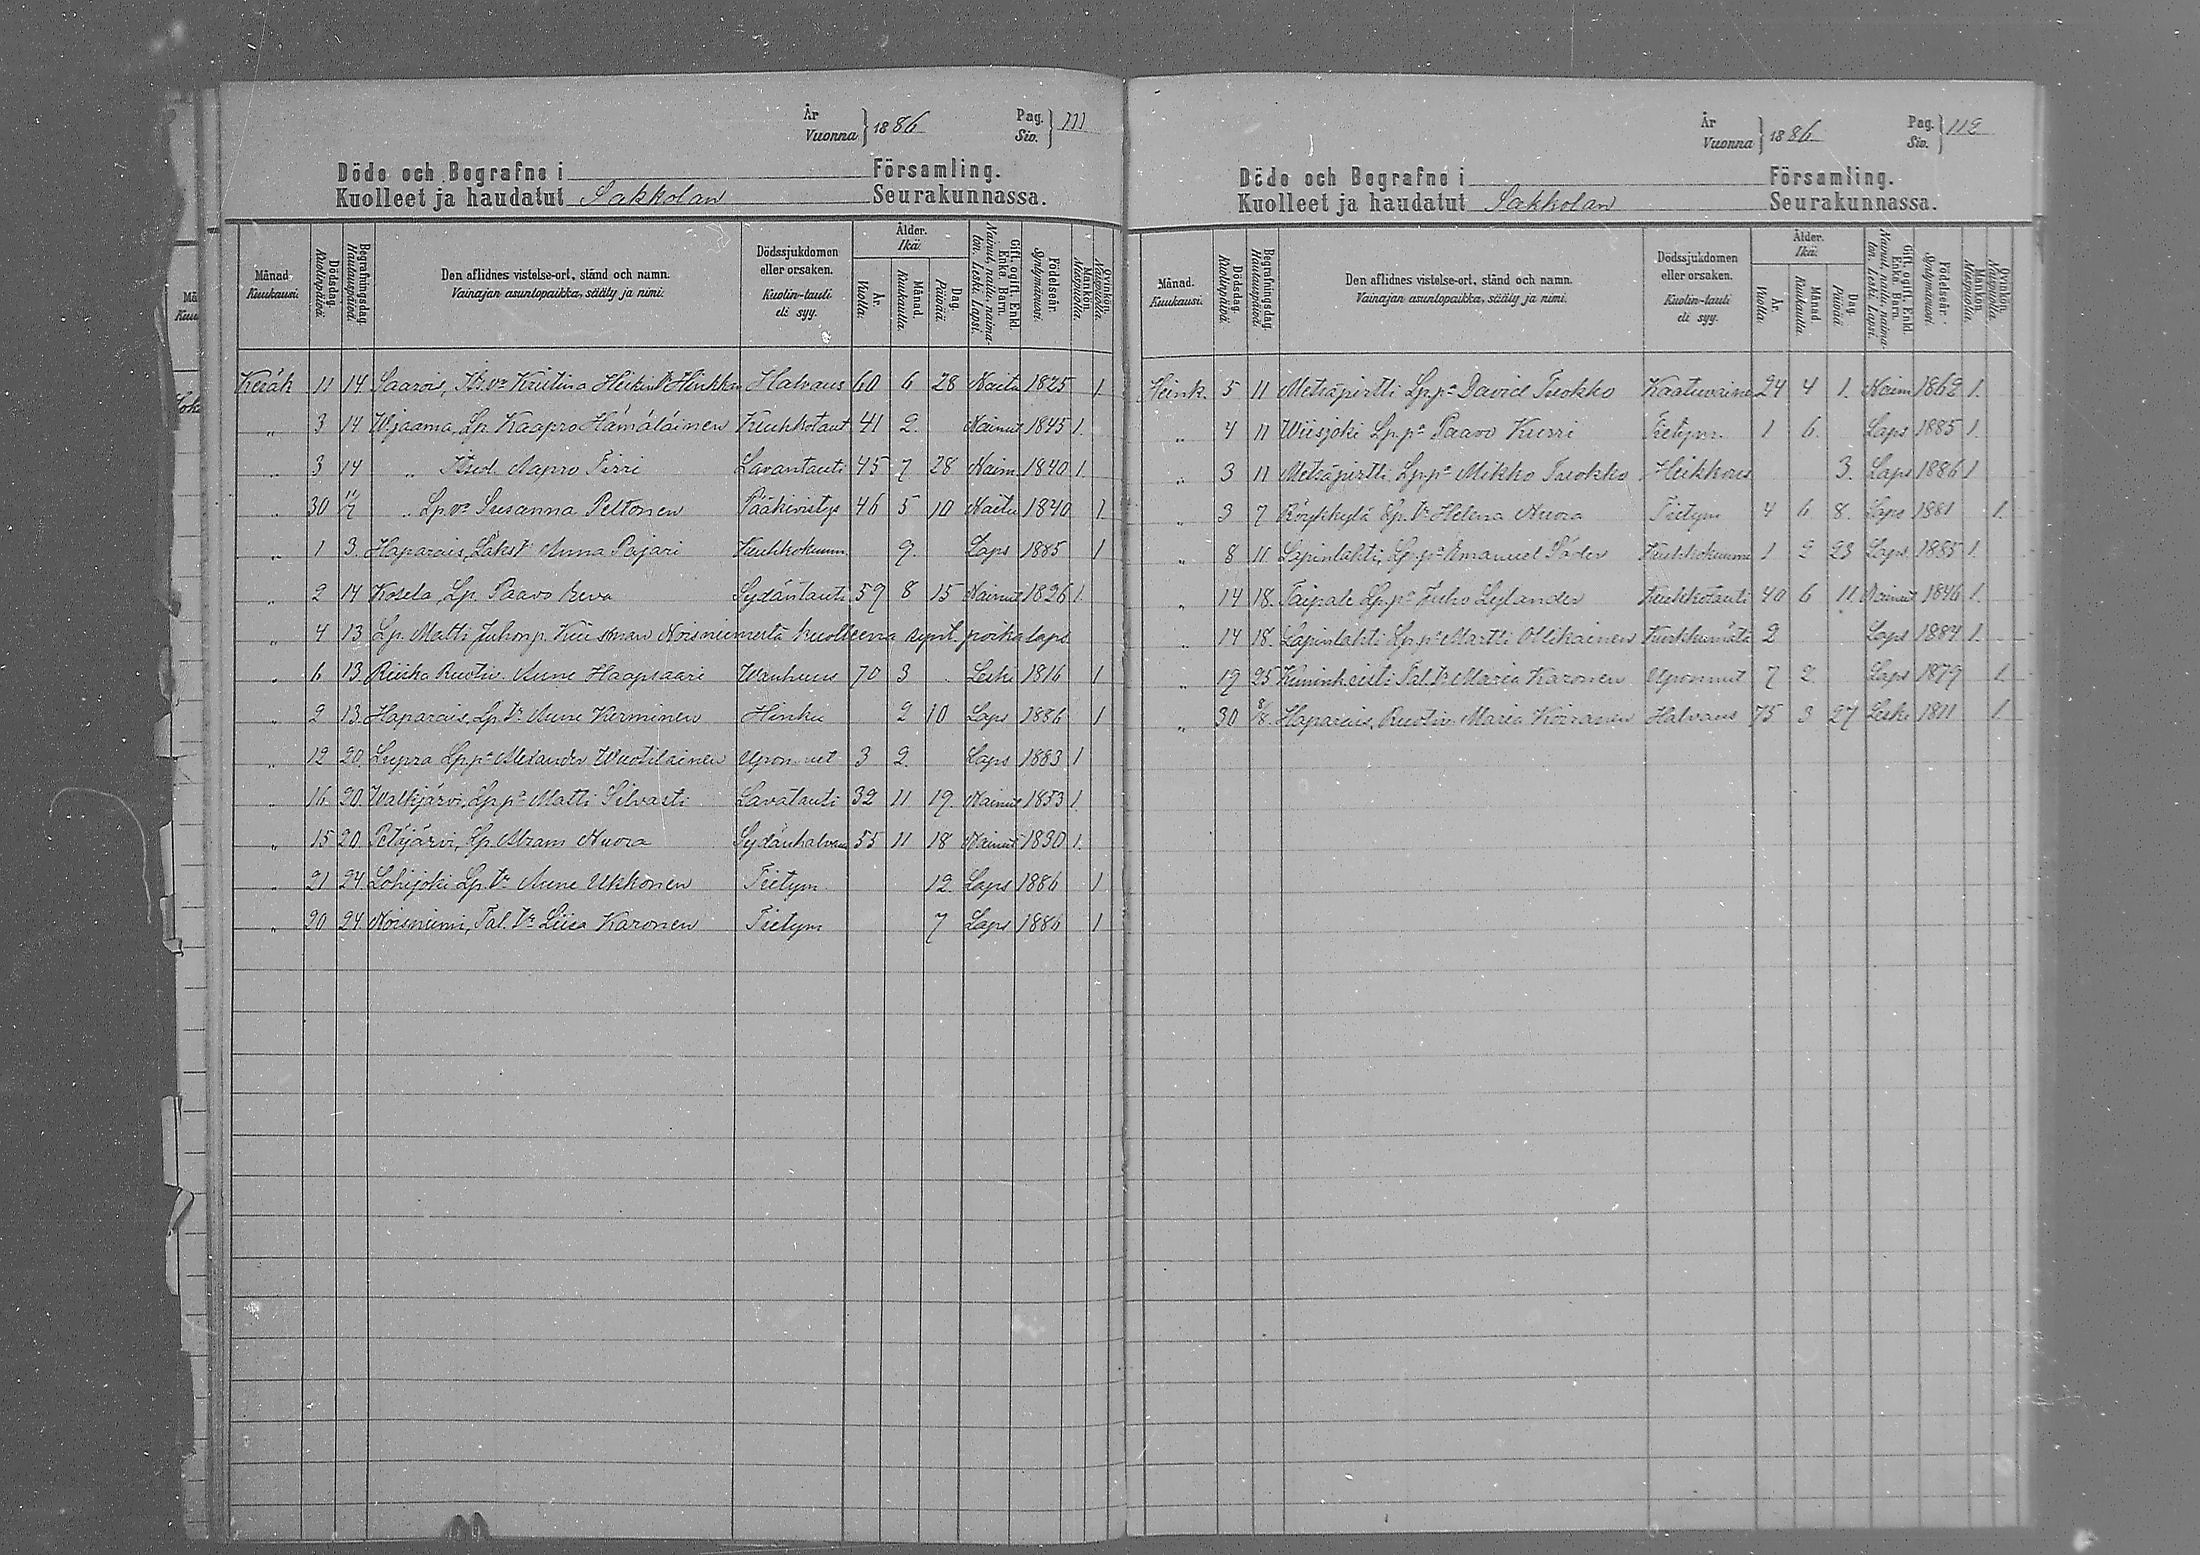 År
Vuonna } 1886
Pag.
Siv. } 111
Döde och Begrafne i Församling.
Kuolleet ja haudatut Sakkolan Seurakunnassa.
Månad. Kuukausi. Dödsdag. Kuolinpäivä. Begrafningsdag. Hautauspäivä. Den aflidnes vistelse-ort, stånd och namn. Vainajan asuntopaikka, sääty ja nimi. Dödssjukdomen eller orsaken. Kuolin-tauti eli syy. Ålder. Ikä. År. Vuotta. Månad. Kuukautta. Dag. Päivää. Gift, ogift, Enkl. Enka. Barn. Nainut, naitu, naimaton, Leski, Lapsi. Födelseår. Syntymävuosi. Mankön. Miespuolia. Qvinkön. Naispuolia.
Kesäk 11 14 Saarois, Kristina Heikin Hinkkan Halvaus 60 6 28 Naitu 1825 1.
„ 3 14 Wjaama, Lp. Kaapro Hämäläinen Keuhkotaut 41 2. Nainut 1845 1.
„ 3 14 „ Aapro Pirri Lavantauti 45 7 28 Naim 1840 1.
„ 30 11/7 „ Lp. vo Susanna Peltonen Pääkivistys 46 5 10 Naitu 1840 1.
„ 1 3. Haparais, Anna Pajari Keuhkokuum 9. Laps 1885 1
„ 2 14 Kosela, Lp. Paavo Eeva Sydäntauti 59 8 15 Nainut 1826 1.
„ 4 13 Lp. Matti Juhonp. Noisniemestä kuolleena synt. poikalaps
„ 6 13. Riiska Ruotiv. Anne Haapsaari Wanhuus 70 3 Leski 1816 1
„ 2 13. Haparais, Lp. tr Anne Kerminen Hinku 2 10 Laps 1886 1
„ 12 20. Lp. po Alexander Wuotilainen Uponnut 3 2. Laps 1883 1
„ 16 20. Walkjärvi, Lp. po Matti Silvasti Lavatauti 32 11 19. Nainut 1853 1.
„ 15 20. Petäjärvi, Lp. Abram Nuora Sydänhalvaus 55 11 18 Nainut 1830 1.
„ 21 24 Lohijoki Lp. tr Anne Ukkonen Tietym. 12 Laps 1886 1
„ 20 24. Noisniemi, Tal. tr Liisa Karonen Tietym 7 Laps 1886 1
År
Vuonna } 1886
Pag.
Siv. } 112
Döde och Begrafne i Församling.
Kuolleet ja haudatut Sakkolan Seurakunnassa.
Månad. Kuukausi. Dödsdag. Kuolinpäivä. Begrafningsdag. Hautauspäivä. Den aflidnes vistelse-ort, stånd och namn. Vainajan asuntopaikka, sääty ja nimi. Dödssjukdomen eller orsaken. Kuolin-tauti eli syy. Ålder. Ikä. År. Vuotta. Månad. Kuukautta. Dag. Päivää. Gift, ogift, Enkl. Enka. Barn. Nainut, naitu, naimaton, Leski, Lapsi. Födelseår. Syntymävuosi. Mankön. Miespuolia. Qvinkön. Naispuolia.
Heink. 5 11 Metsäpirtti Lp. po David Tuokko Kaatuvaine 24 4 1. Naim 1862 1.
„ 4 11 Wiisjoki Lp. po Paavo Kurri Tietym 1 6. Laps 1885 1.
„ 3 11 Metsäpirtti Lp. po Mikko Tuokko Heikkous 3. Laps 1886 1
„ 3 7 Röykkylä Lp. tr Helena Nuora Tietym 4 6 8. Laps 1881 1.
„ 8 11 Lapinlahti, Lp. po Emanuel Päder Keuhkokuume 1 2 23 Laps 1885 1.
„ 14 18. Taipale Lp. po Juho Leylander Keuhkotauti 40 6 11 Nainut 1846 1.
„ 14 18. Lapinlahti Lp. po Martti Ollikainen Kurkkumätä 2 Laps 1884 1.
„ 19 25 Tal. tr Maria Karonen Uponnut 7 2. Laps 1879 1.
„ 30 8/8. Haparais, Ruotiv. Maria Koiranen Halvaus 75 3 27 Leski 1811 1.